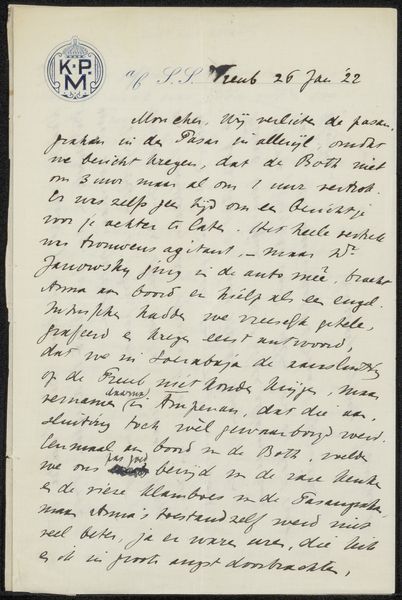 K.P.M.
a/b S.S. Treub 26 Jan '22
Moncher. Wij verlieten de pasan-
grahan in den Pasar in allerijl, omdat
we bericht kregen, dat de Both niet
om 3 uur maar al om 1 uur vertrok.
Er was zelfs geen tijd om een berichtje
voor je achter te laten. Het heele vertrek
was trouwens agitant, – maar Dr.
Janowsky ging in de auto mee, bracht
Anna aan boord en hielp als een engel.
Intusschen hadden we vreeselijk getele-
grafeerd en kregen eerst antwoord,
dat we in Soerabaja de aansluiting
op de Treub niet konden krijgen, maar
vernamen daarna in Ampenan, dat die aan-
sluiting toch wel gewaarborgd werd.
Eenmaal aan boord van de Both, voelden
we ons pas goed bevrijd van de
en de vieze klamboes in de Pasangrahan,
maar Anna's toestand zelf werd niets
veel beter, ja er waren uren, die
ik in groote angst doorbrachten,